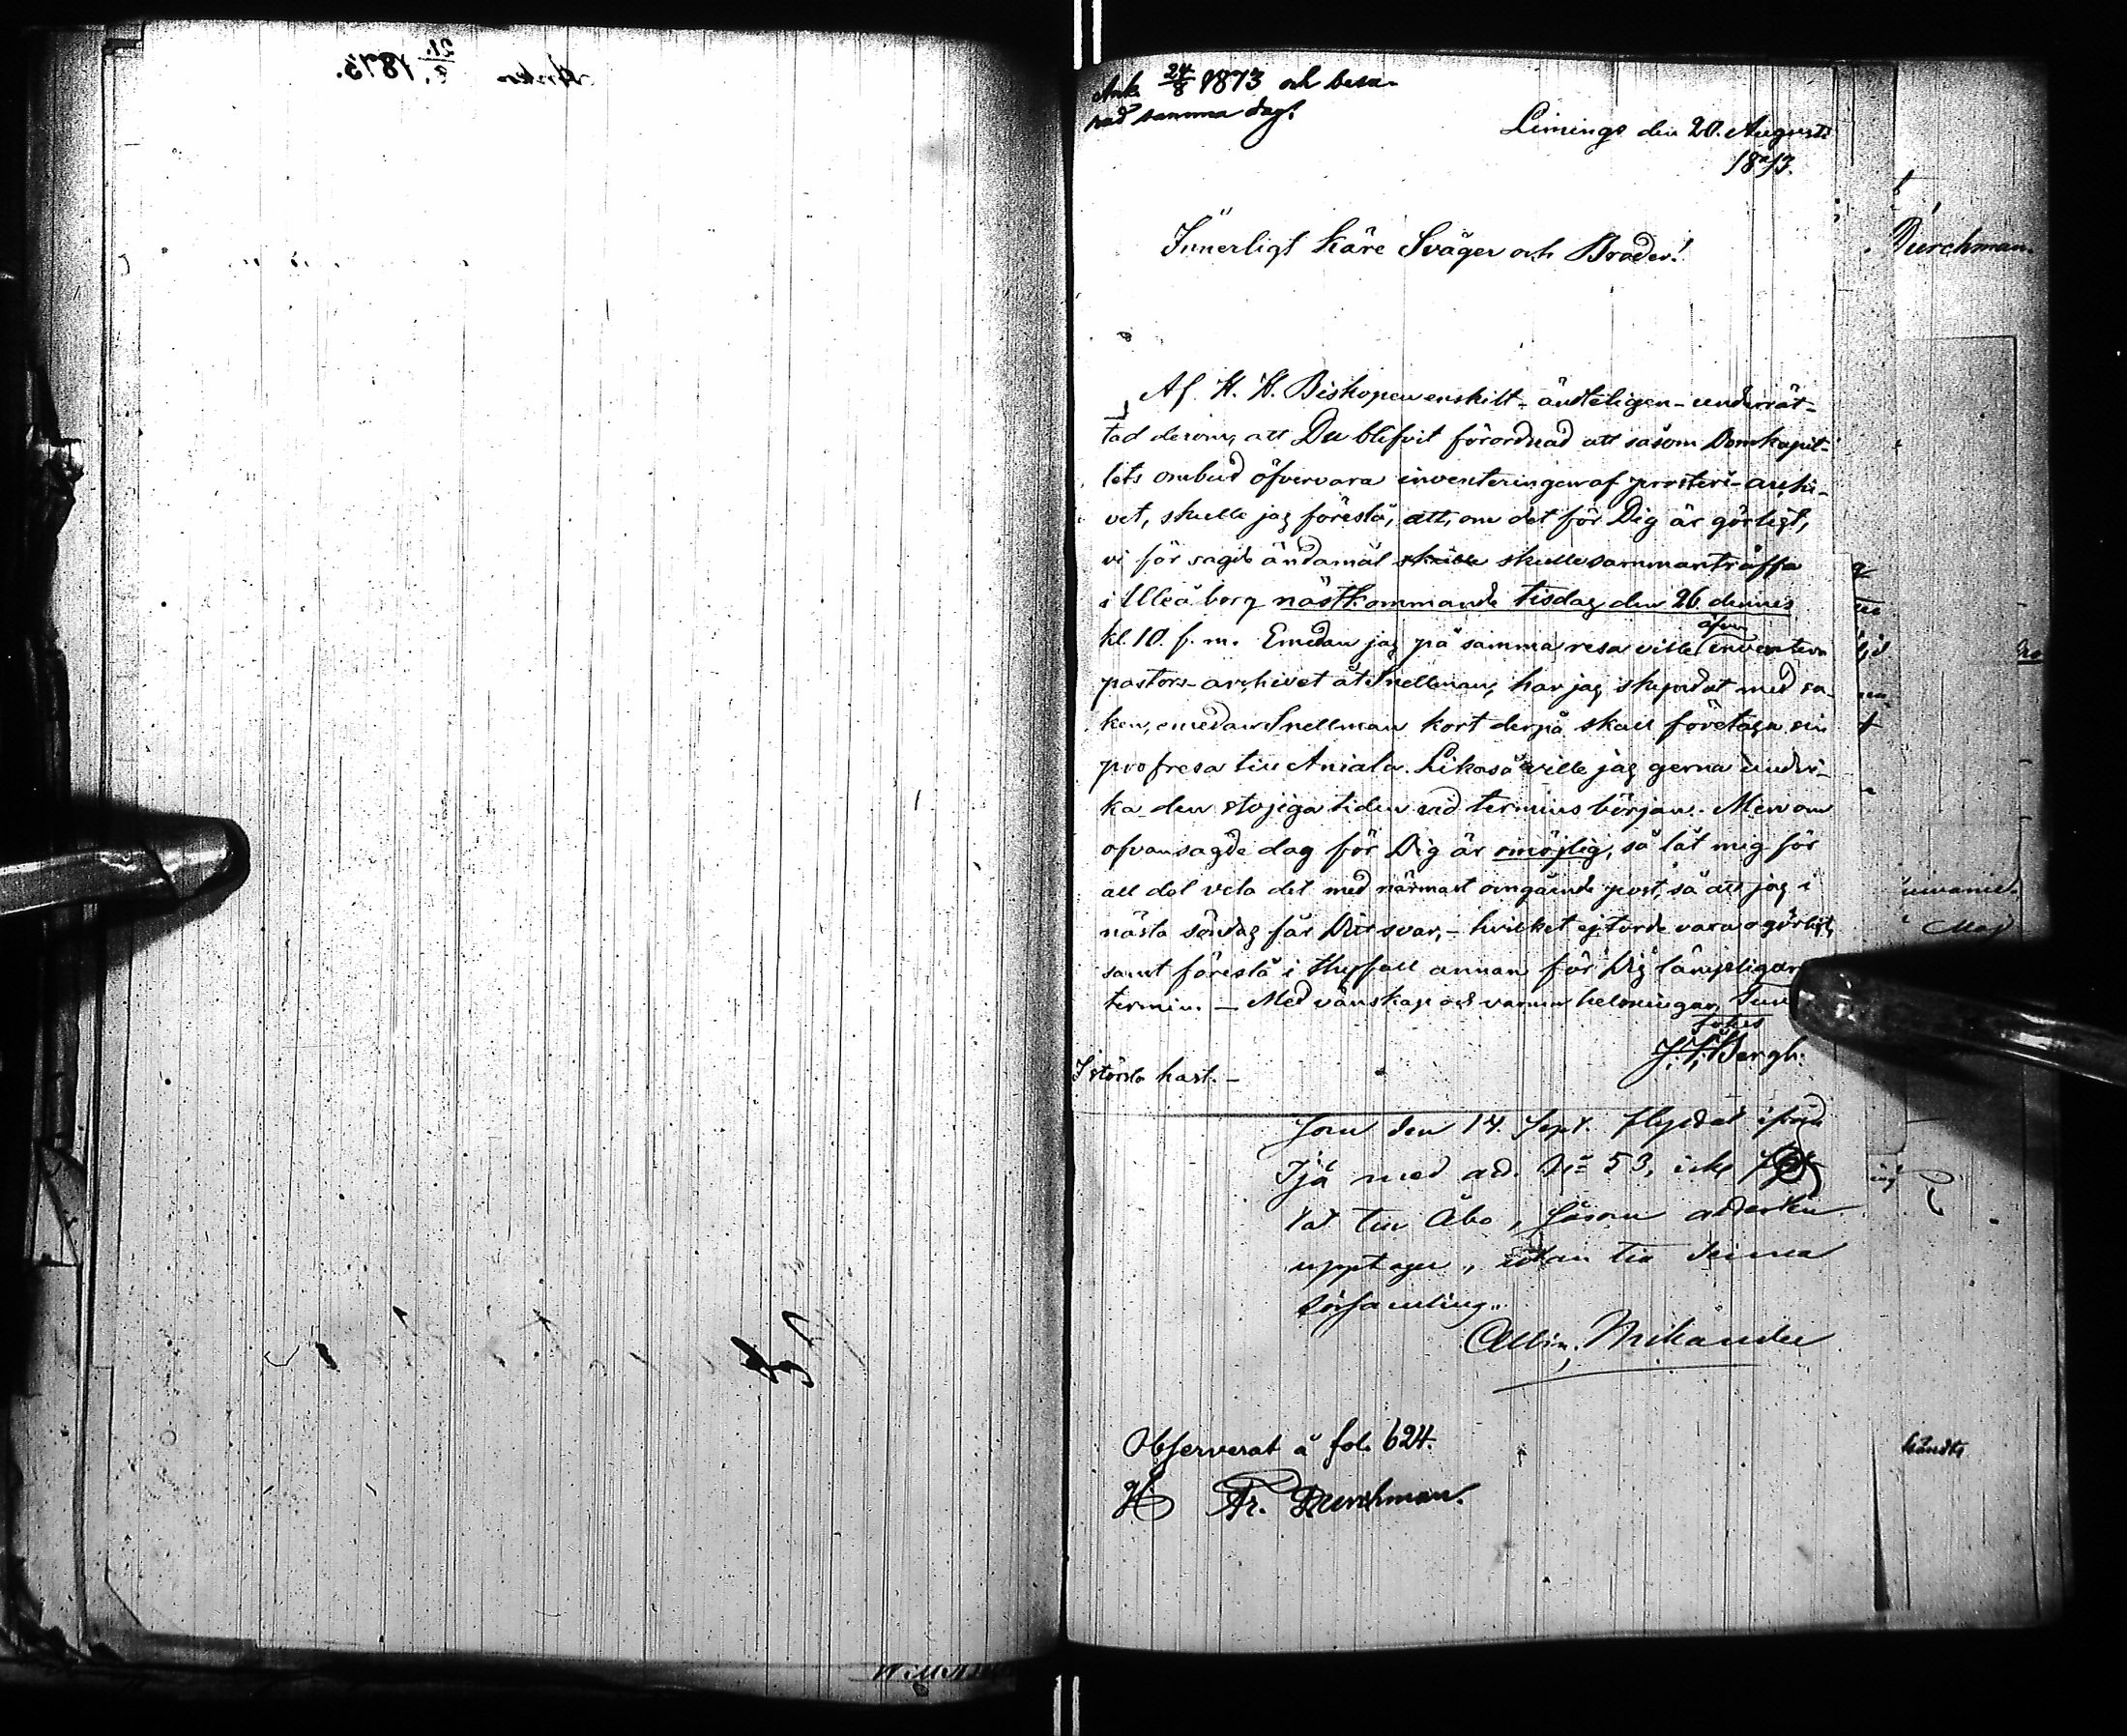 Ank. 24/8 1873 och besva-
rad samma dag.
Limingo den 20. Augusti
1873.
Innerligt käre Svåger och Broder!
Af H. H. Biskopen enskilt - ändteligen - underrät-
tad derom, att Du blifvit förordnad att såsom Domkapit-
lets ombud öfvervara inventeringen af prosteri-arki-
vet, skulle jag föreslå, att, om det för Dig är görligt,
vi för sagde ändamål skulle skulle sammanträffa
i Uleåborg nästkommande tisdag den 26 dennes
kl. 10. f. m. Emedan jag på samma resa ville äfven inventera
pastors-archivet åt Snellman, har jag skyndat med sa-
ken, emedan Snellman kort derpå skall företaga sin
profresa till Aniala. Likaså ville jag gerna undvi-
ka den stojiga tiden vid termins början. Men om
ofvansagde dag för Dig är omöjlig, så låt mig för
all del veta det med närmast omgående post, så att jag i
nästa söndag får Ditt svar, - hvilket ej torde vara ogörligt,
samt föreslå i thy fall annan för Dig lämpligare
termin. - Med vänskap och varma helsningar, Tuus
totus
J. F. Bergh.
I största hast. -
som den 14. Sept. flyttat ifrån
Ijå med att. No 53, icke flyt
tat till Åbo, såsom attesten
upptager, utan till denna
församling.
Albin. Mikander
Observerat å fol. 624.
Fr. Durchman.
Durchman.